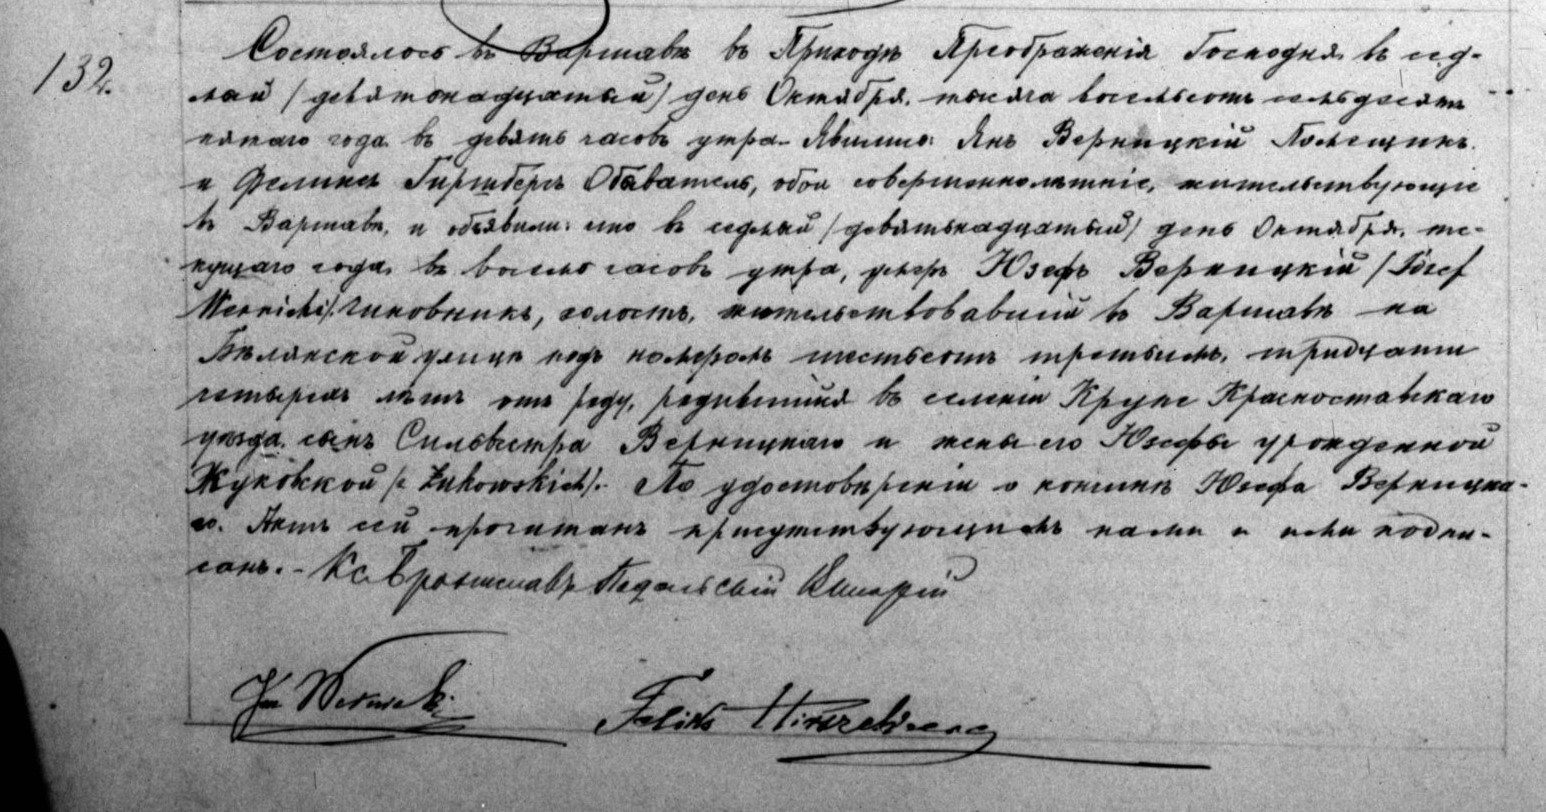 132.
Состоялось въ Варшавѣ въ Приходѣ Преображенія Господня въ сед-
мый /девятонадцатый/ день Октября, тысяча восемьсотъ семьдесятъ
пятаго года въ девять часовъ утра. Явились: Янъ Верницкій Помещикъ
и Феликсъ Гиршбергъ Обыватель, обои совершеннолѣтніе, жительствующіе
въ Варшавѣ, и объявили: что въ седмый /девятьнадцатый/ день Октября, те-
кущаго года, въ восемь часовъ утра, умеръ Юзефъ Верницкій /Józef
Wernicki/. чиновникъ, холостъ, жительствовавшій въ Варшавѣ на
Бѣлянской улицѣ подъ номеромъ шестьсотъ третьимъ, тридцати
четырехъ лѣтъ отъ роду, родившійся въ селеніи Крупе Красноставскаго
уѣзда, сынъ Сильвестра Верницкаго и жены его Юзефы урожденной
Жуковской /z Żukowskich/. По удостовѣреніи о кончинѣ Юзефа Верницка-
го. Актъ сей прочитанъ присутствующимъ нами и ими подпи-
санъ. – Кс. Брониславъ Подольскій Викарій
Jan Wernicki Felix Hirszberg